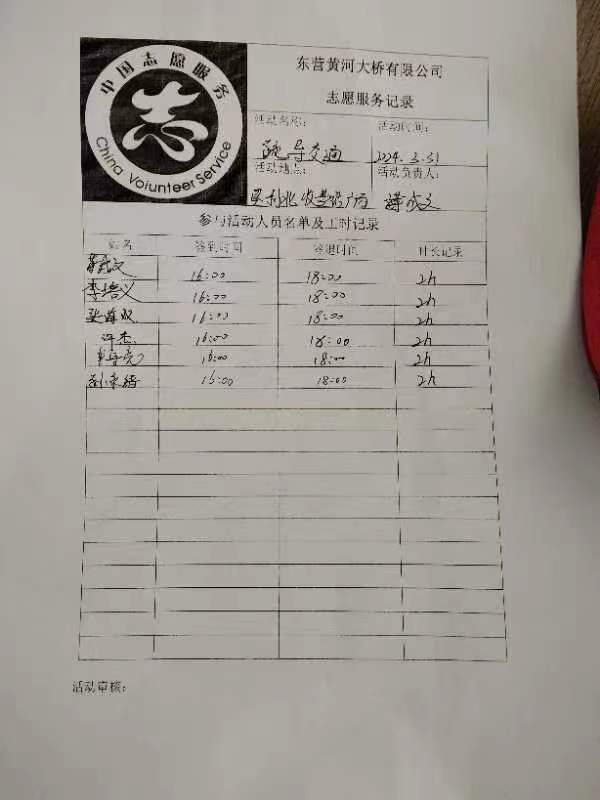 中国志愿服务
志
China Volunteer Service
东营黄河大桥有限公司
志愿服务记录
活动名称：
活动时间：
疏导交通
2024.3.31
活动地点：
活动负责人：
收费站广场
参与活动人员名单及工时记录
姓名 签到时间 签退时间 时长记录
16:00 18:00 2h
李培义 16:00 18:00 2h
16:00 18:00 2h
许杰 16:00 18:00 2h
16:00 18:00 2h
16:00 18:00 2h
活动审核：